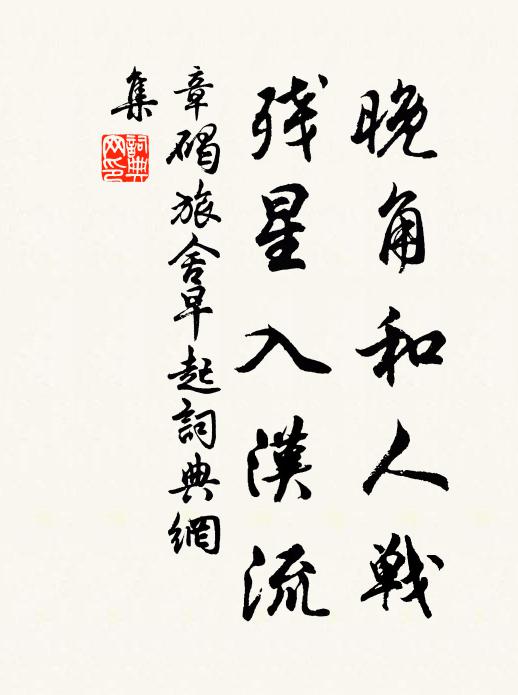 晚角和人戦
残星入漢流
章碣旅舍早起詞典網
集
詞典網印